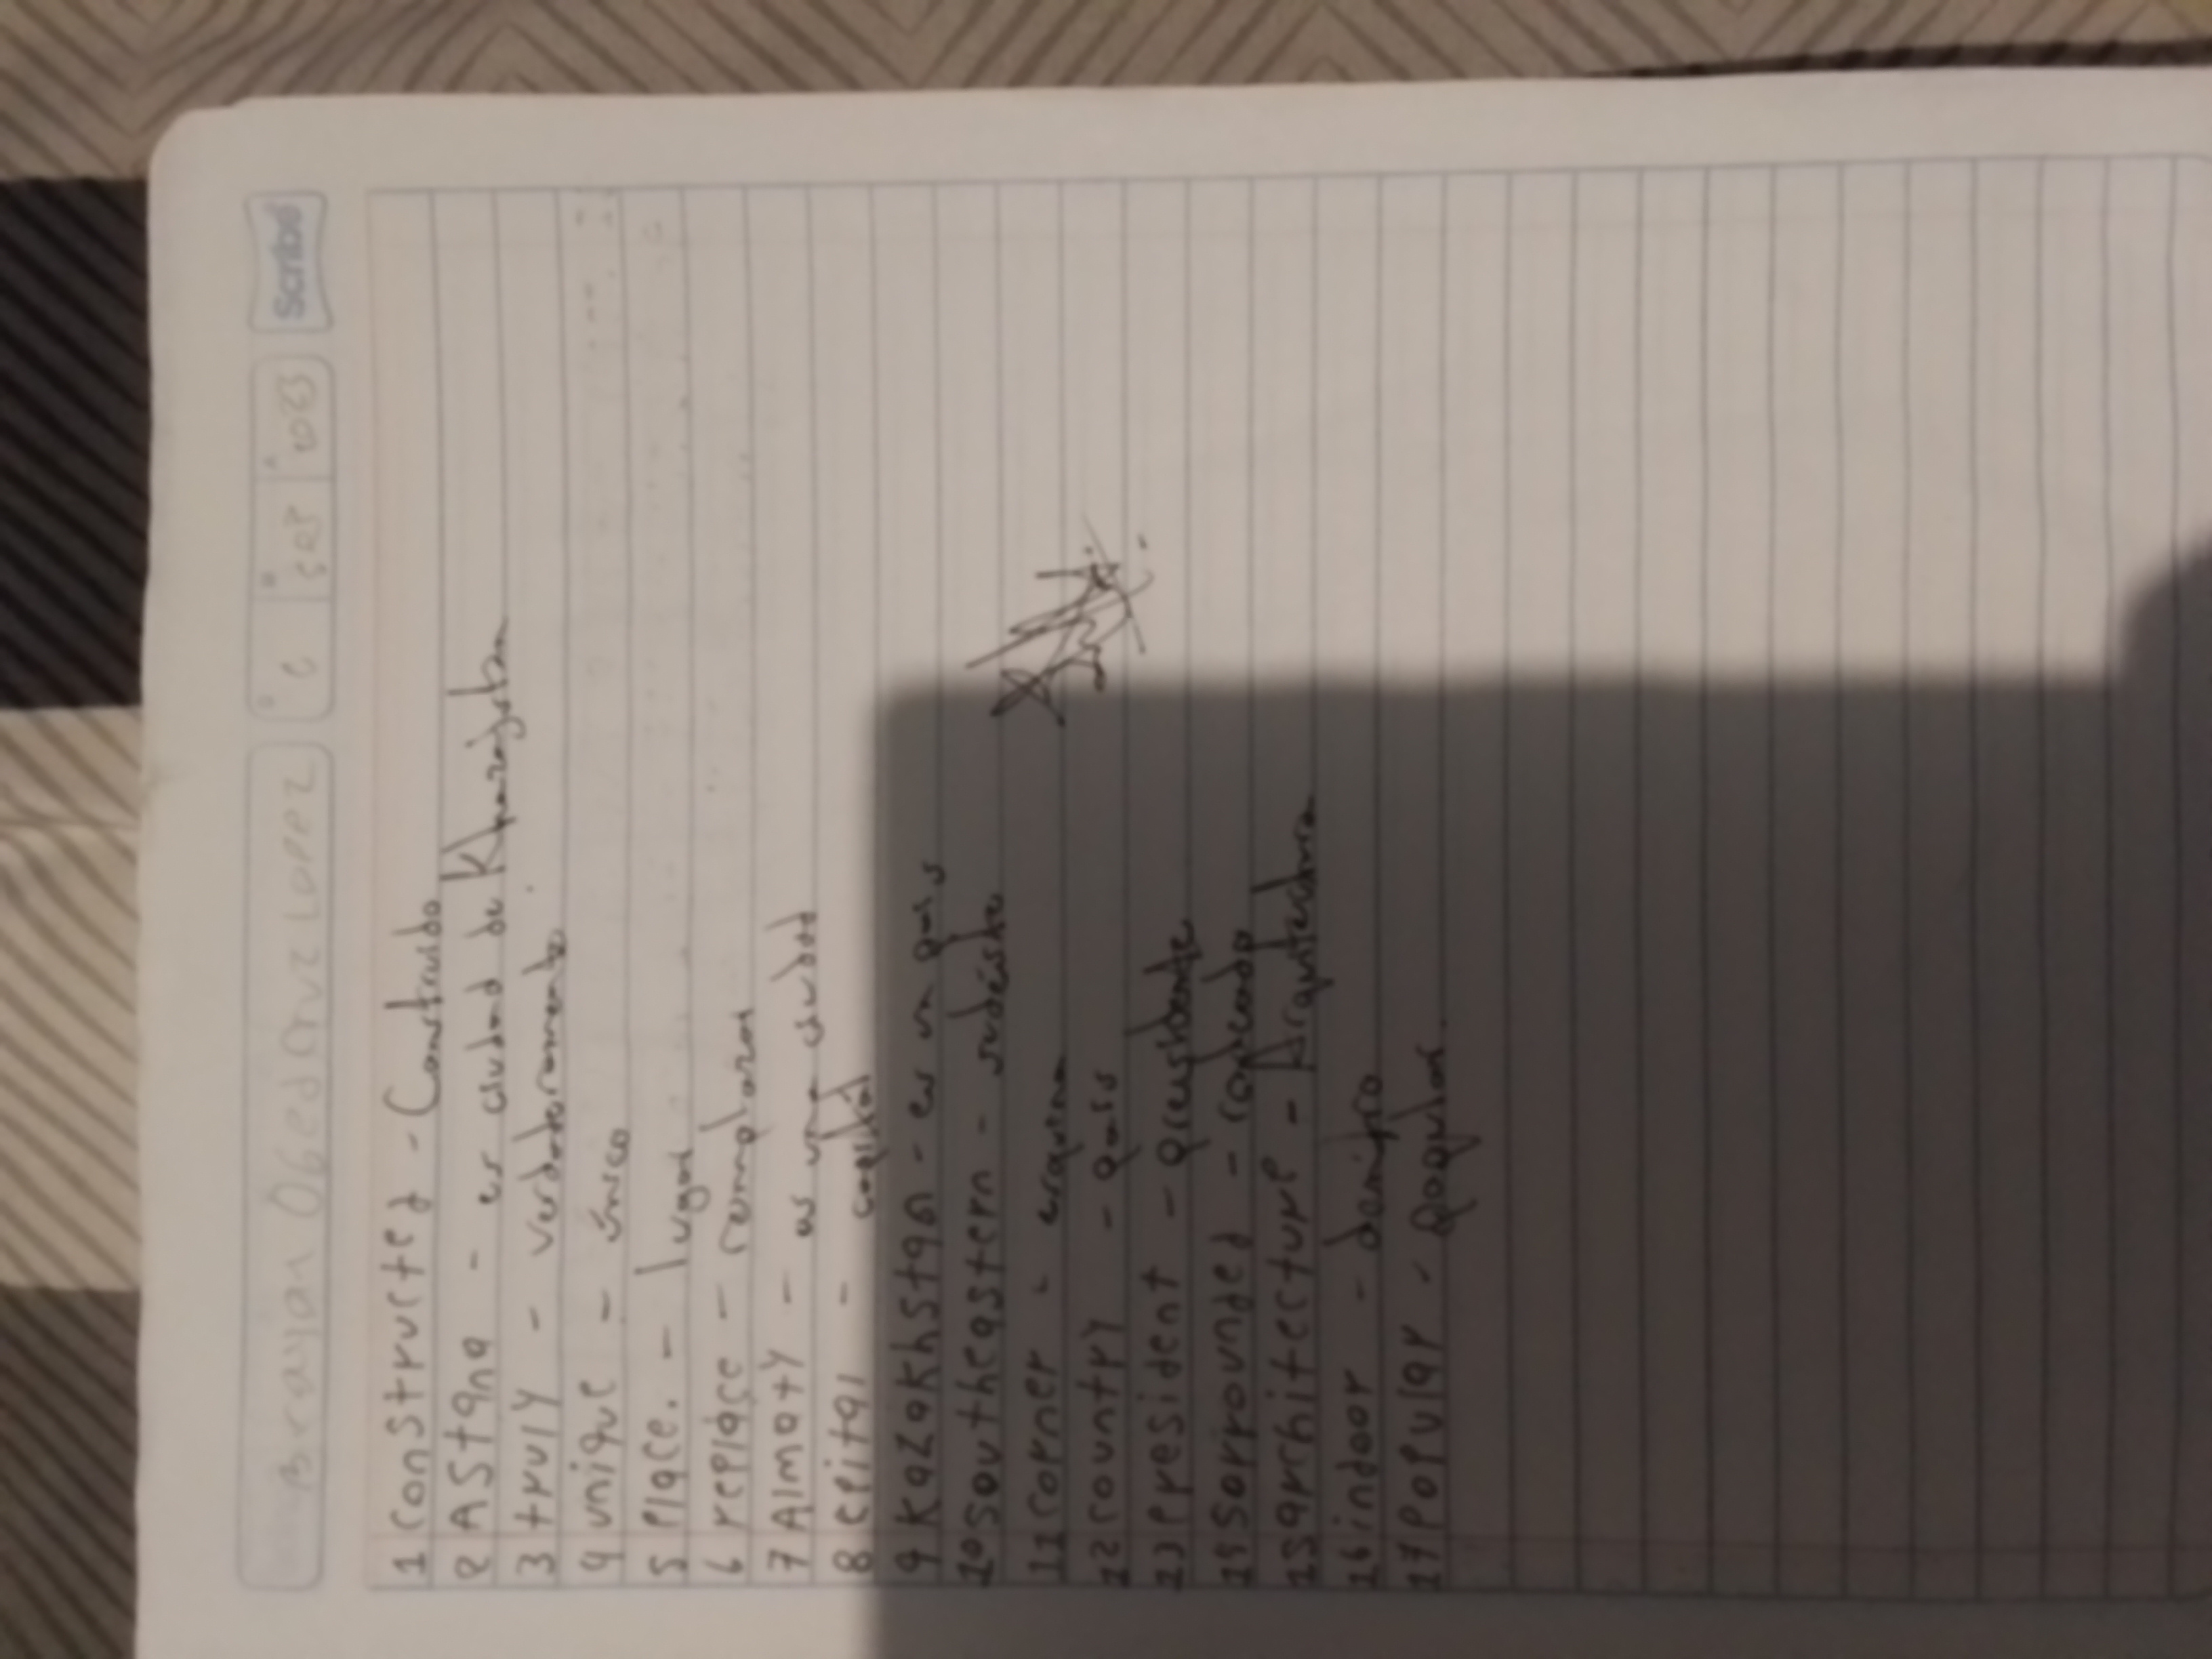 Brayan Obed Cruz Lopez Scribe
1 constructed - Construido
2 Astana - es ciudad de Khazajstan
3 truly - verdaderamente
4 unique - único
5 place. - lugar
6 replace - remplazar
7 Almaty - es una ciudad
8 cpital - capital
9 Kazakhstan - es un pais
10 southeastern - sudeste
11 corner - esquina
12 country - pais
13 president - presidente
14 sorrounded - rodeando
15 architecture - Arquitectura
16 indoor - dentro
17 Popular - Popular.